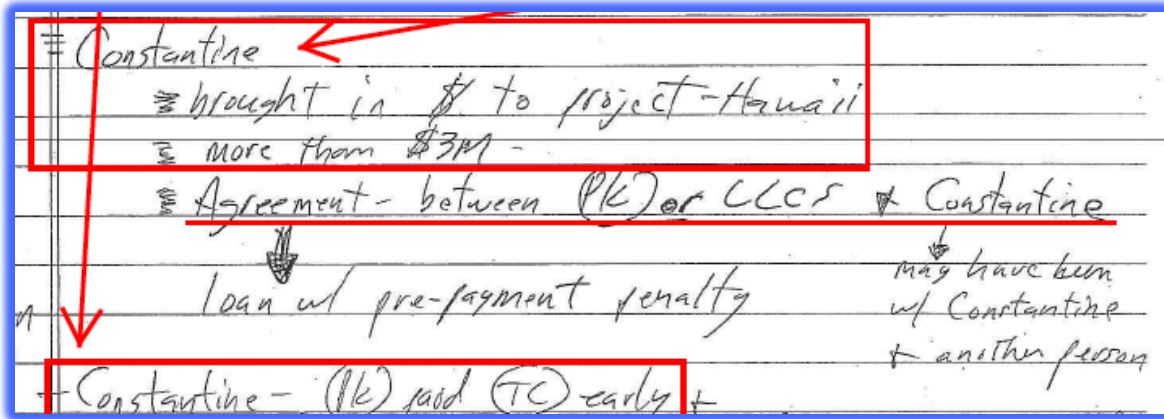 Constantine
brought in $ to project-Hawaii
more than $3M -
Agreement - between (PK) or LLCs & Constantine
may have been
loan w/ pre-payment penalty
w/ Constantine
n
+ another person
+ Constantine - (PK) paid (TC) early +